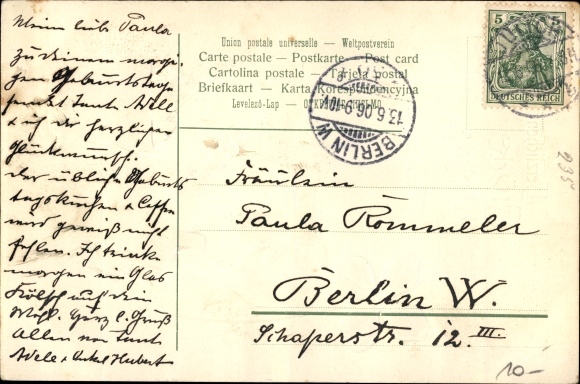 Mein liebe Paula
zu deinem morgi-
gen Geburtstage
sendet Tante Adele
& ich dir herzlichen
Glückwunsch.
der übliche Geburts
tagskuchen & Caffee
wird gewiß nicht
fehlen. Ich trinke
morgen ein Glas
Kölsch auf dein
Wohl. Herz l. Gruß
Allen von Tante
Adele & Onkel Hubert
Union postale universelle – Weltpostverein
Carte postale – Postkarte – Post card
Cartolina postale – Tarjeta postal
Briefkaart – Karta Korespondencyjna
Levelező-Lap –
5 5
DEUTSCHES REICH
BERLIN W
13.6.06.9-10
Fräulein
Paula Rommeler
Berlin W.
Schaperstr. 12. III.
235
10-